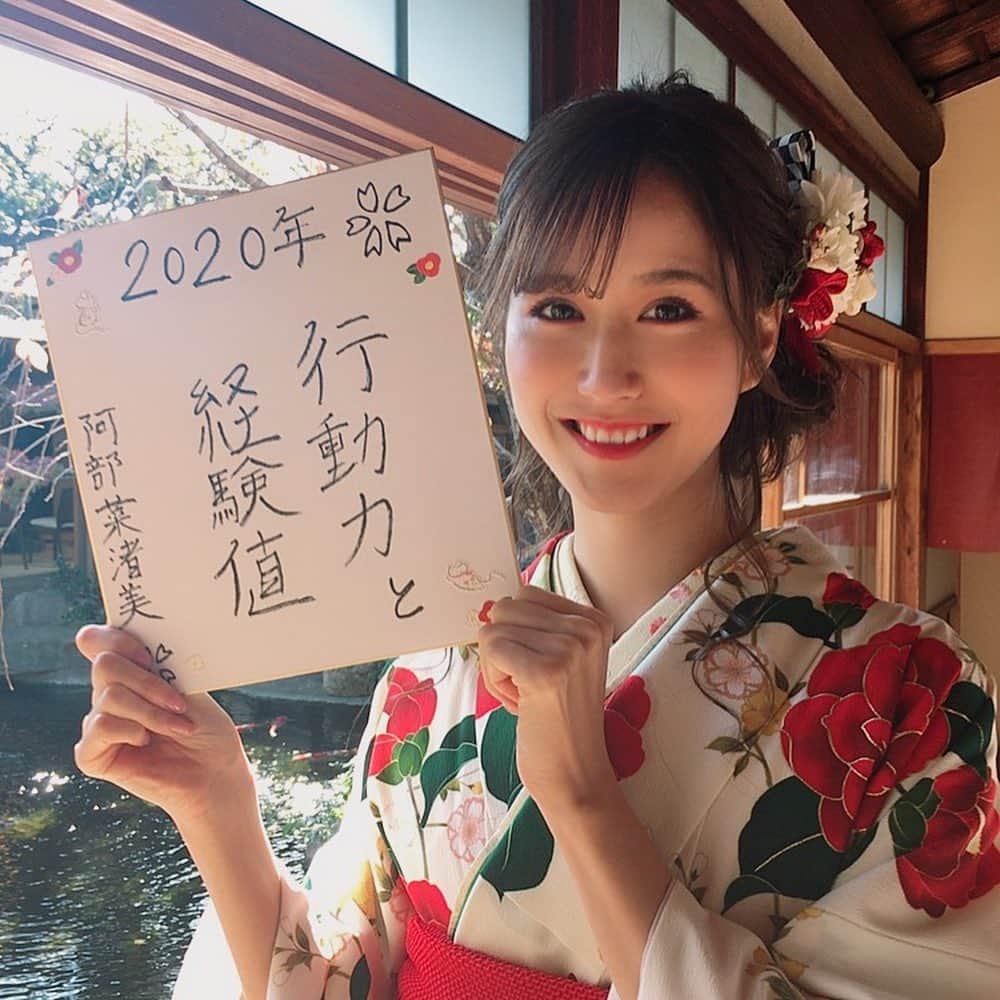 2020年
行動力と
経験値
阿部菜渚美